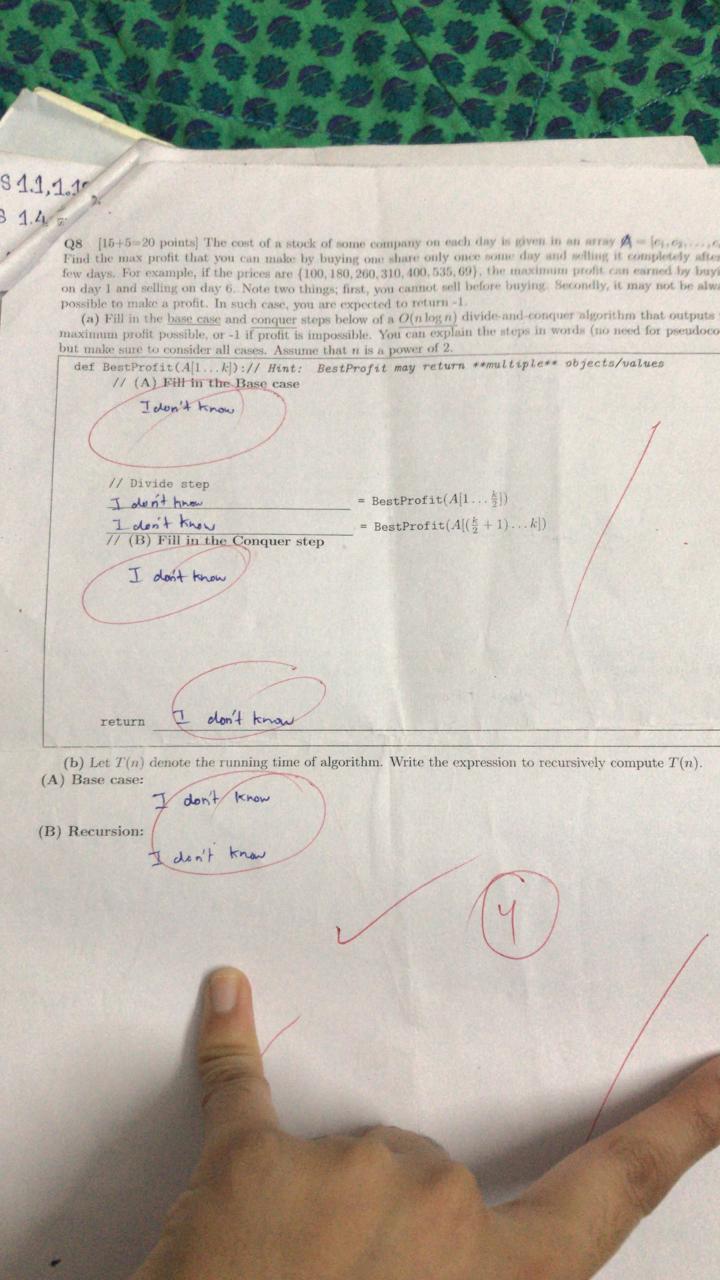 S 1.1, 1.1
S 1.4
Q8 [15+5=20 points] The cost of a stock of some company on each day is given in an array A = [c₁, c₂, . . . , c
Find the max profit that you can make by buying one share only once some day and selling it completely afte
few days. For example, if the prices are {100, 180, 260, 310, 400, 535, 69}, the maximum profit can earned by buyi
on day 1 and selling on day 6. Note two things; first, you cannot sell before buying. Secondly, it may not be alwa
possible to make a profit. In such case, you are expected to return -1.
(a) Fill in the base case and conquer steps below of a O(n log n) divide-and-conquer algorithm that outputs
maximum profit possible, or -1 if profit is impossible. You can explain the steps in words (no need for pseudoco
but make sure to consider all cases. Assume that n is a power of 2.
def BestProfit(A[1...k])://  Hint: BestProfit may return **multiple** objects/values
// (A) Fill in the Base case
I don't know
// Divide step
I don't know = BestProfit(A[1 . . . k/2])
I don't know = BestProfit(A[(k/2 + 1) . . . k])
// (B) Fill in the Conquer step
I don't know
return I don't know
(b) Let T(n) denote the running time of algorithm. Write the expression to recursively compute T(n).
(A) Base case:
I don't know
(B) Recursion:
I don't know